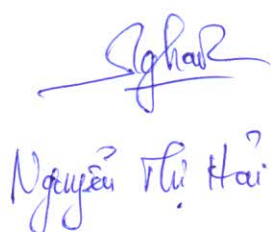 Nguyễn Thị Hải